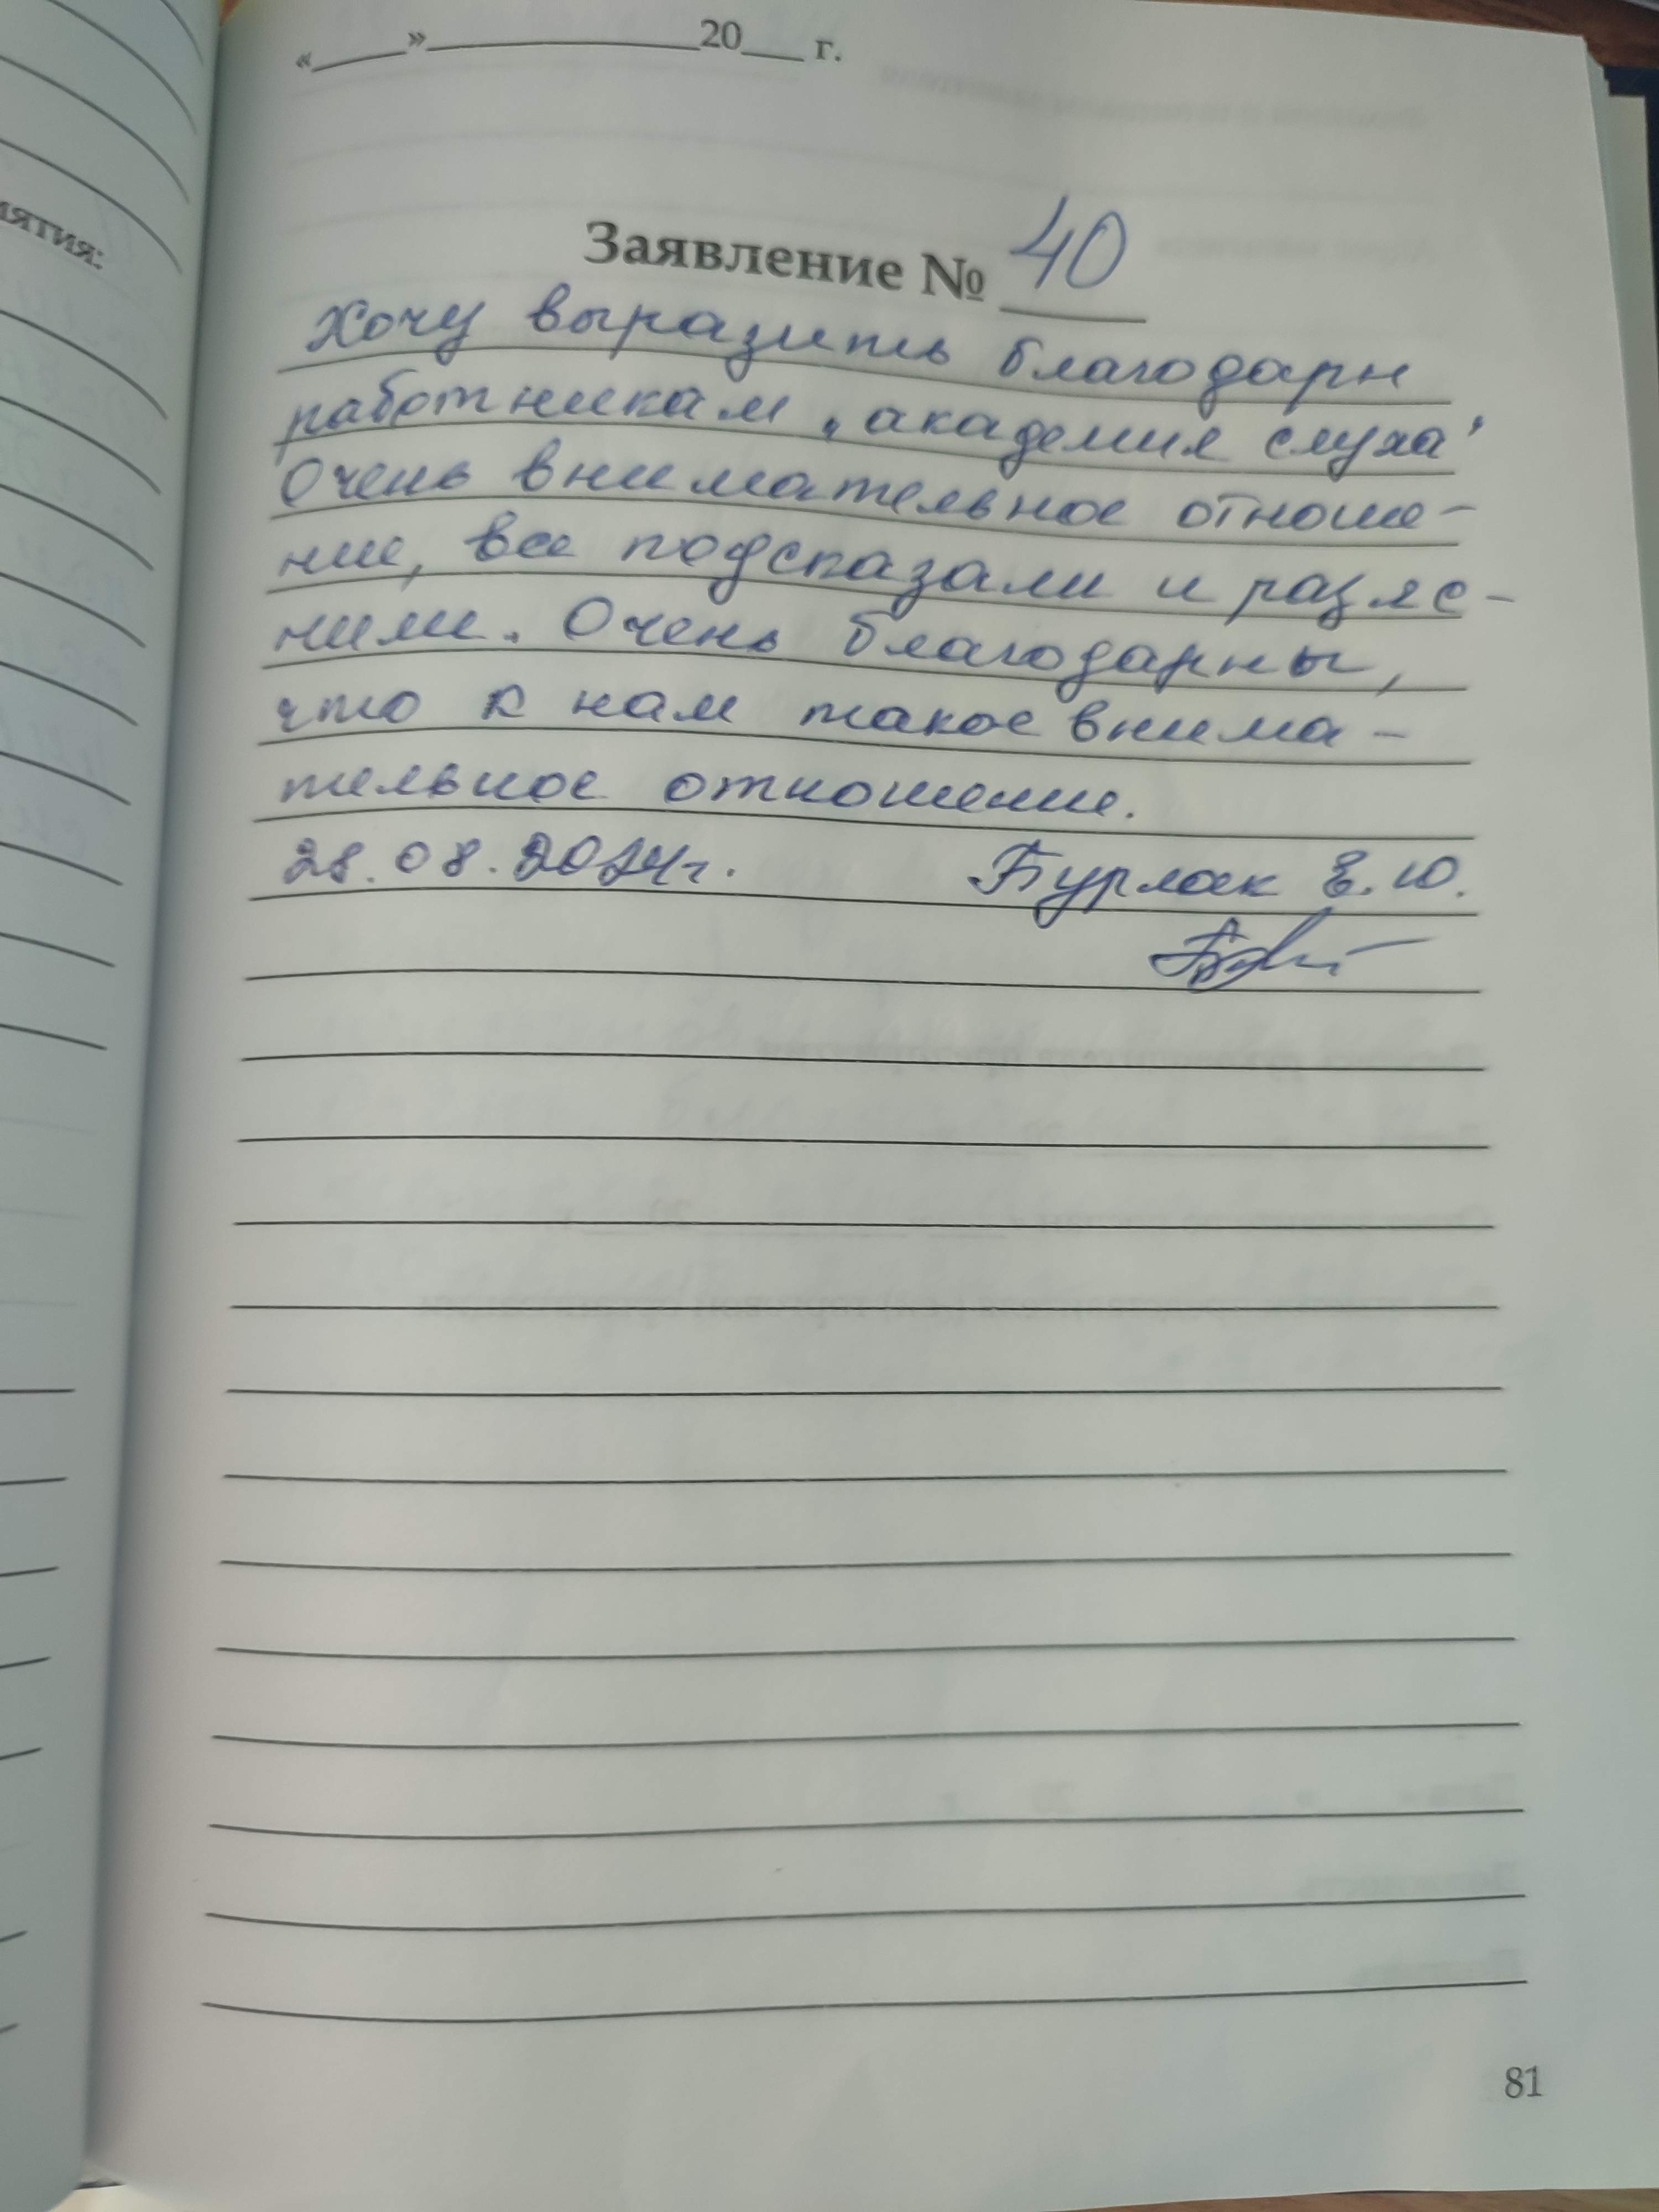 «____»____________20___ г.
Заявление № 40
Хочу выразить благодарн
работникам „академия слуха"
Очень внимательное отноше-
ние, все подсказали и разъяс-
нили. Очень благодарны,
что к нам такое внима-
тельное отношение.
28.08.2024г. Бурлак Е.Ю.
81